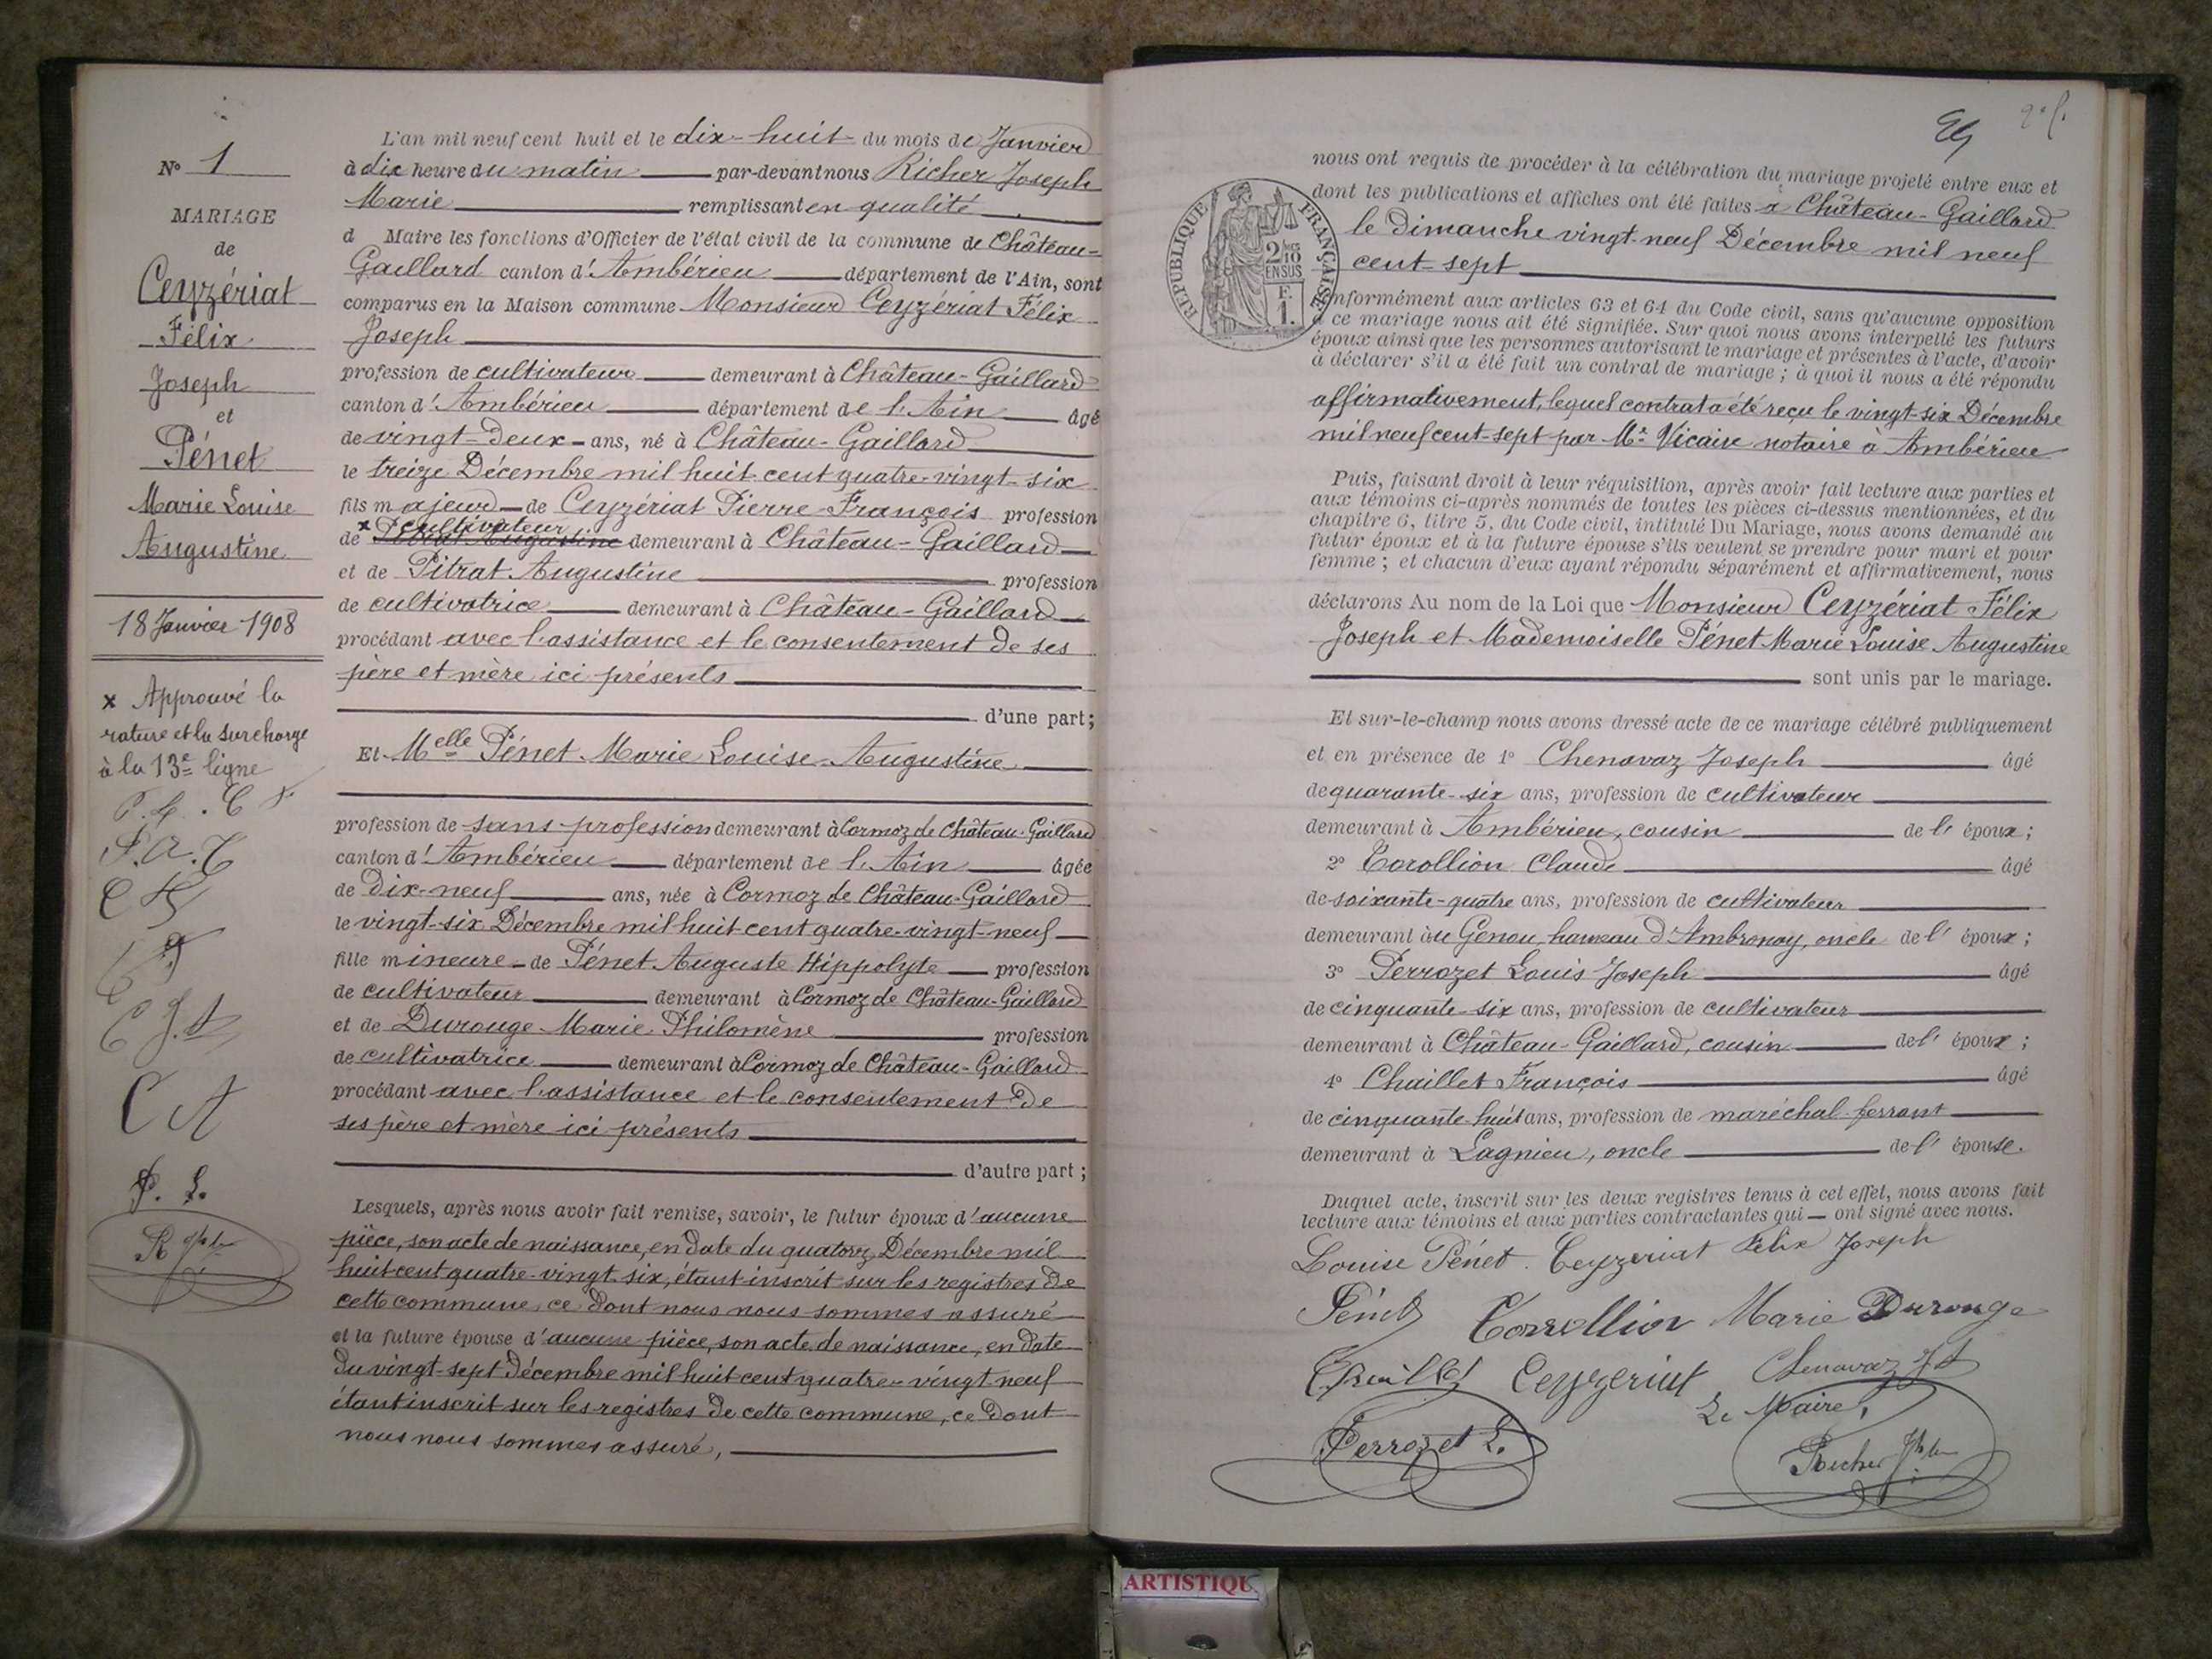 N° 1
MARIAGE
de
Ceyzériat
Félix
Joseph
et
Pénet
Marie Louise
Augustine
18 Janvier 1908
x Approuvé la
rature et la surcharge
à la 13e ligne
P. A. C
C A
P. L.
L'an mil neuf cent huit et le dix-huit du mois de Janvier
à dix heure du matin par-devant nous Richer Joseph
Marie remplissant en qualité
d Maire les fonctions d'Officier de l'état civil de la commune de Château-
Gaillard canton d'Ambérieu département de l'Ain, sont
comparus en la Maison commune Monsieur Ceyzériat Félix
Joseph
profession de cultivateur demeurant à Château-Gaillard
canton d'Ambérieu département de l'Ain âgé
de vingt-deux ans, né à Château-Gaillard
le treize Décembre mil huit cent quatre-vingt-six
fils majeur de Ceyzériat Pierre-François profession
x cultivateur
de Pitrat Augustine demeurant à Château-Gaillard
et de Pitrat Augustine profession
de cultivatrice demeurant à Château-Gaillard
procédant avec l'assistance et le consentement de ses
père et mère ici présents
d'une part;
Et Melle Pénet Marie Louise Augustine
profession de sans profession demeurant à Cormoz de Château-Gaillard
canton d'Ambérieu département de l'Ain âgée
de Dix-neuf ans, née à Cormoz de Château-Gaillard
le vingt-six Décembre mil huit cent quatre-vingt-neuf
fille mineure de Pénet Auguste Hippolyte profession
de cultivateur demeurant à Cormoz de Château-Gaillard
et de Durouge Marie Philomène profession
de cultivatrice demeurant à Cormoz de Château-Gaillard
procédant avec l'assistance et le consentement de
ses père et mère ici présents
d'autre part;
Lesquels, après nous avoir fait remise, savoir, le futur époux d'aucune
pièce, son acte de naissance, en date du quatorze Décembre mil
huit cent quatre-vingt-six, étant inscrit sur les registres de
cette commune, ce dont nous nous sommes assuré
et la future épouse d'aucune pièce, son acte de naissance, en date
du vingt-sept Décembre mil huit cent quatre-vingt neuf
étant inscrit sur les registres de cette commune, ce dont
nous nous sommes assuré,
RÉPUBLIQUE FRANÇAISE
2/10 EN SUS
F. 1.
nous ont requis de procéder à la célébration du mariage projeté entre eux et
dont les publications et affiches ont été faites à Château-Gaillard
le dimanche vingt-neuf Décembre mil neuf
cent-sept
conformément aux articles 63 et 64 du Code civil, sans qu'aucune opposition
à ce mariage nous ait été signifiée. Sur quoi nous avons interpellé les futurs
époux ainsi que les personnes autorisant le mariage et présentes à l'acte, d'avoir
à déclarer s'il a été fait un contrat de mariage; à quoi il nous a été répondu
affirmativement, lequel contrat a été reçu le vingt-six Décembre
mil neuf cent-sept par Me Vicaire notaire à Ambérieu
Puis, faisant droit à leur réquisition, après avoir fait lecture aux parties et
aux témoins ci-après nommés de toutes les pièces ci-dessus mentionnées, et du
chapitre 6, titre 5, du Code civil, intitulé Du Mariage, nous avons demandé au
futur époux et à la future épouse s'ils veulent se prendre pour mari et pour
femme; et chacun d'eux ayant répondu séparément et affirmativement, nous
déclarons Au nom de la Loi que Monsieur Ceyzériat Félix
Joseph et Mademoiselle Pénet Marie Louise Augustine
sont unis par le mariage.
Et sur-le-champ nous avons dressé acte de ce mariage célébré publiquement
et en présence de 1° Chenavaz Joseph âgé
de quarante-six ans, profession de cultivateur
demeurant à Ambérieu, cousin de l'époux;
2° Corollion Claude âgé
de soixante-quatre ans, profession de cultivateur
demeurant au Genou, hameau d'Ambronay, oncle de l'époux;
3° Perrozet Louis Joseph âgé
de cinquante-six ans, profession de cultivateur
demeurant à Château-Gaillard, cousin de l'époux;
4° Chaillet François âgé
de cinquante-huit ans, profession de maréchal-ferrant
demeurant à Lagnieu, oncle de l'épouse.
Duquel acte, inscrit sur les deux registres tenus à cet effet, nous avons fait
lecture aux témoins et aux parties contractantes qui ont signé avec nous.
Louise Pénet. Ceyzeriat Félix Joseph
Pénet Corrollion Marie Durouge
Chaillet Ceyzeriat Chenavaz Jh
Le Maire,
Perrozet L. Richer
ARTISTIQU